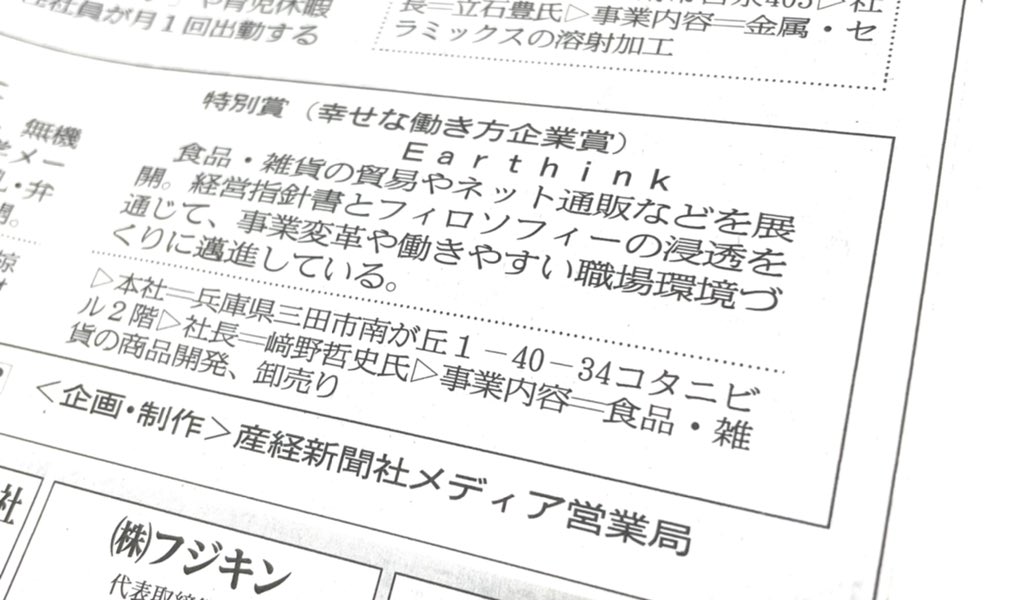 や育児休暇
社員が月１回出勤する
長＝立石豊氏▷事業内容＝金属・セ
ラミックスの溶射加工
無機
メー
・弁
特別賞（幸せな働き方企業賞）
Ｅａｒｔｈｉｎｋ
食品・雑貨の貿易やネット通販などを展
開。経営指針書とフィロソフィーの浸透を
通じて、事業変革や働きやすい職場環境づ
くりに邁進している。
▷本社＝兵庫県三田市南が丘１－40－34コタニビ
ル２階▷社長＝﨑野哲史氏▷事業内容＝食品・雑
貨の商品開発、卸売り
＜企画・制作＞産経新聞社メディア営業局
社
㈱フジキン
代表取締